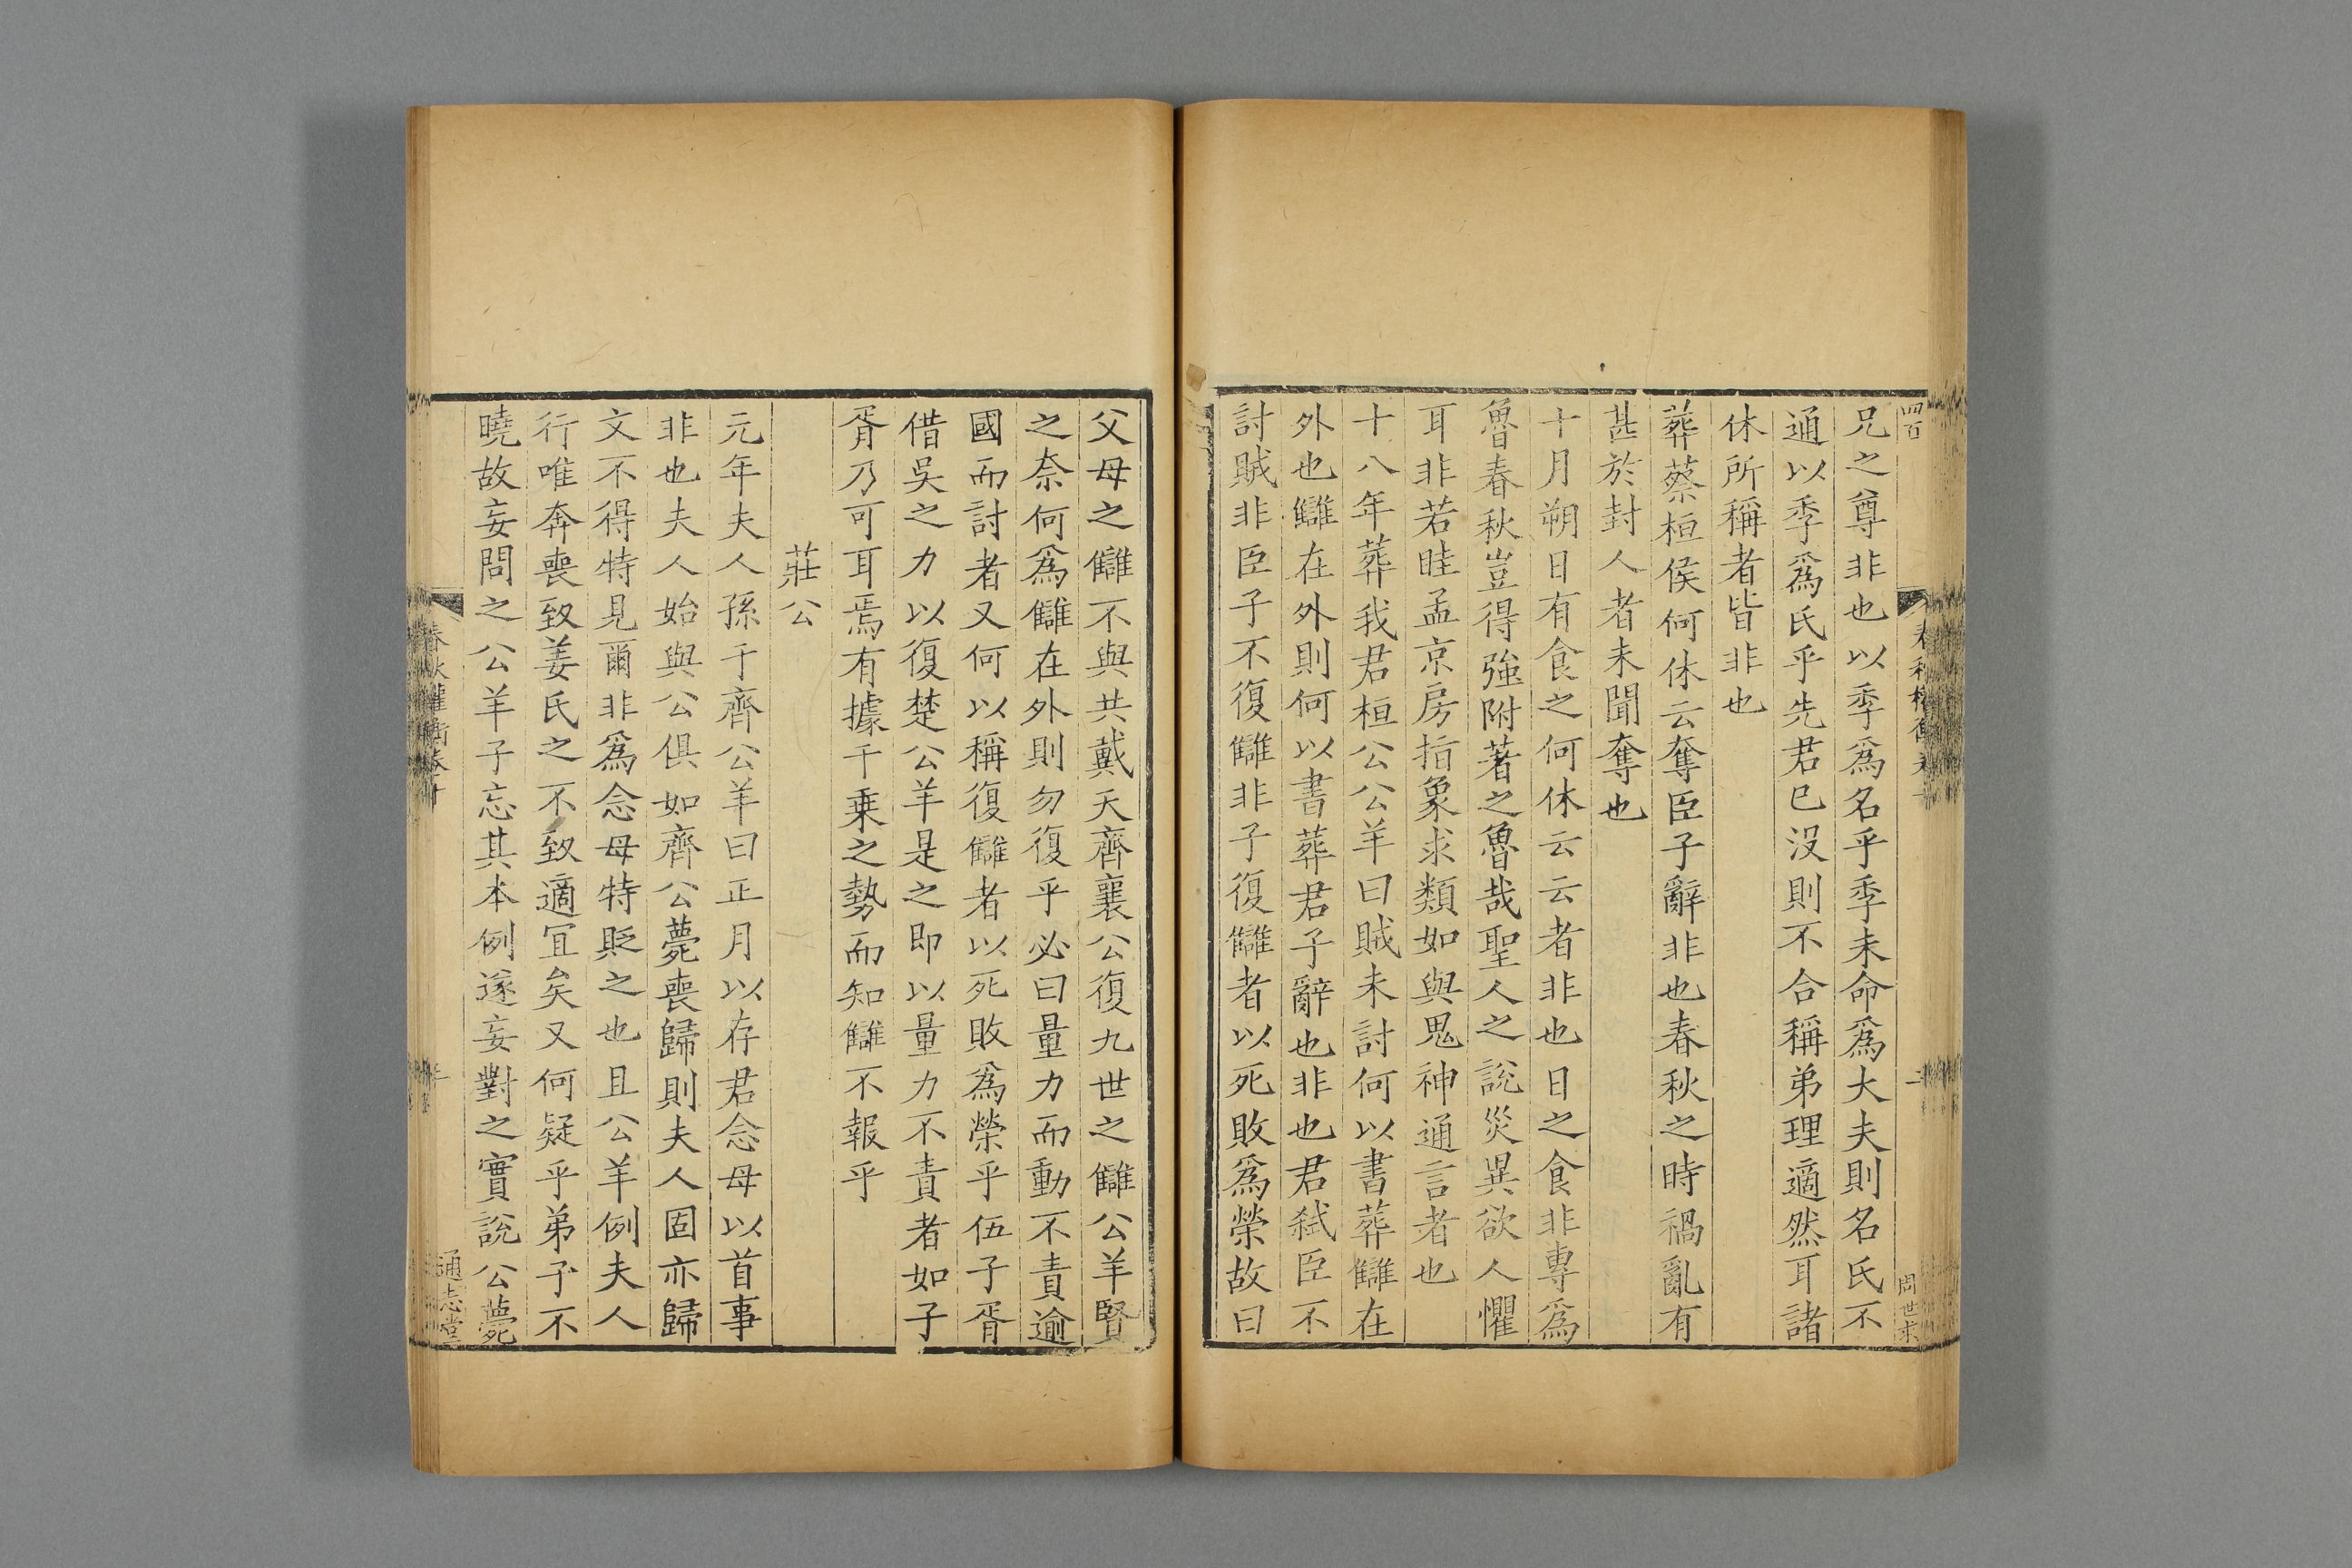 四百
兄之尊非也以季爲名乎季未命爲大夫則名氏不
通以季爲氏乎先君已沒則不合稱弟理適然耳諸
休所稱者皆非也
葬蔡桓侯何休云奪臣子辭非也春秋之時禍亂有
甚於封人者未聞奪也
十月朔日有食之何休云云者非也日之食非專爲
魯春秋豈得強附著之魯哉聖人之說災異欲人懼
耳非若眭孟京房指象求類如與鬼神通言者也
十八年葬我君桓公公羊曰賊未討何以書葬讎在
外也讎在外則何以書葬君子辭也非也君弒臣不
討賊非臣子不復讎非子復讎者以死敗爲榮故曰
父母之讎不與共戴天齊襄公復九世之讎公羊賢
之奈何爲讎在外則勿復乎必曰量力而動不責逾
國而討者又何以稱復讎者以死敗爲榮乎伍子胥
借吳之力以復楚公羊是之即以量力不責者如子
胥乃可耳焉有據千乗之勢而知讎不報乎
莊公
元年夫人孫于齊公羊曰正月以存君念母以首事
非也夫人始與公俱如齊公薨喪歸則夫人固亦歸
文不得特見爾非爲念母特貶之也且公羊例夫人
行唯奔喪致姜氏之不致適宜矣又何疑乎弟子不
曉故妄問之公羊子忘其本例遂妄對之實說公薨
春秋權衡卷十
通志堂